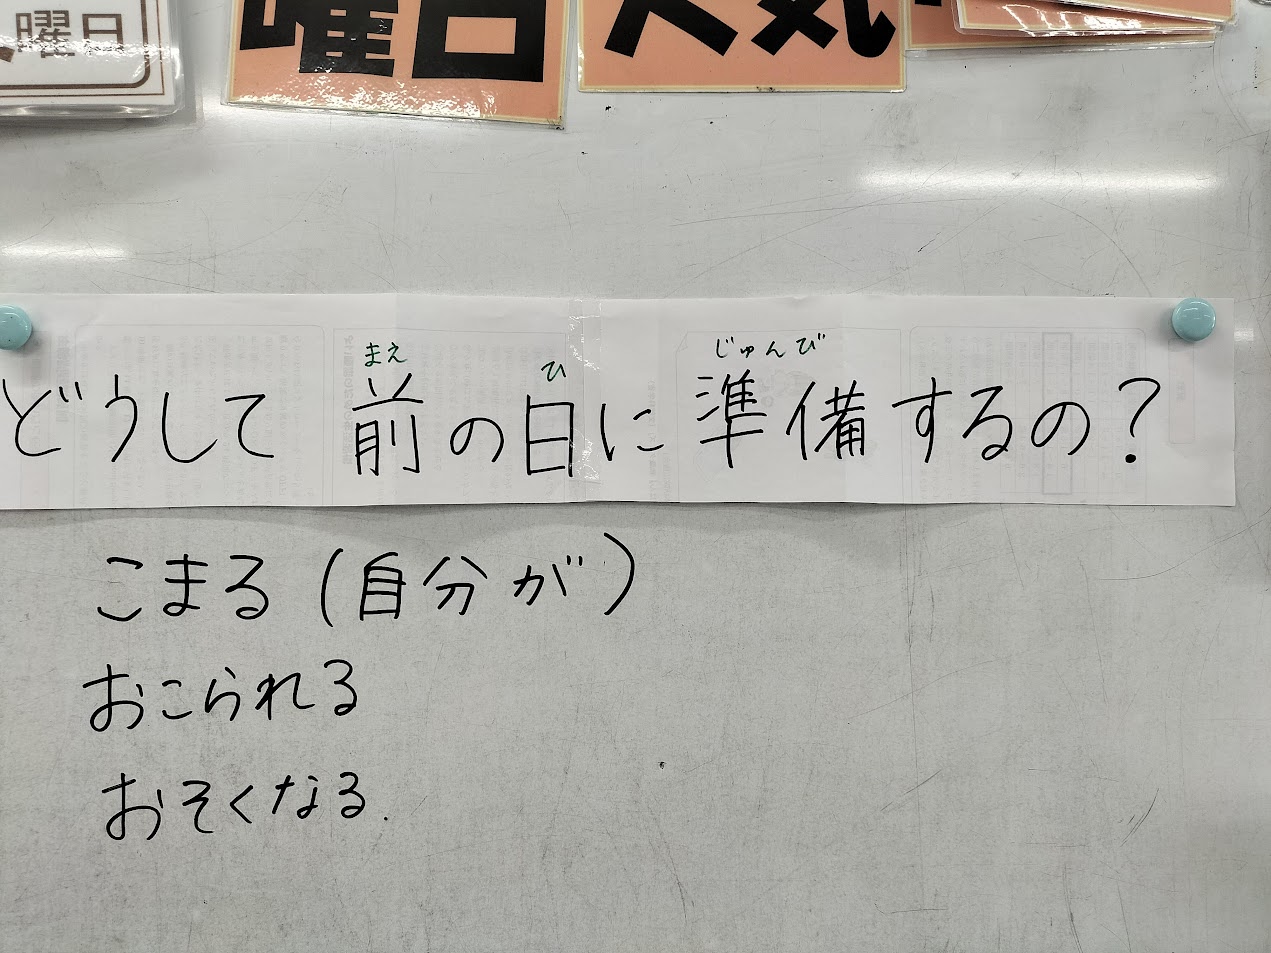 曜日
曜日
天気
まえ ひ じゅんび
どうして前の日に準備するの?
こまる(自分が)
おこられる
おそくなる.